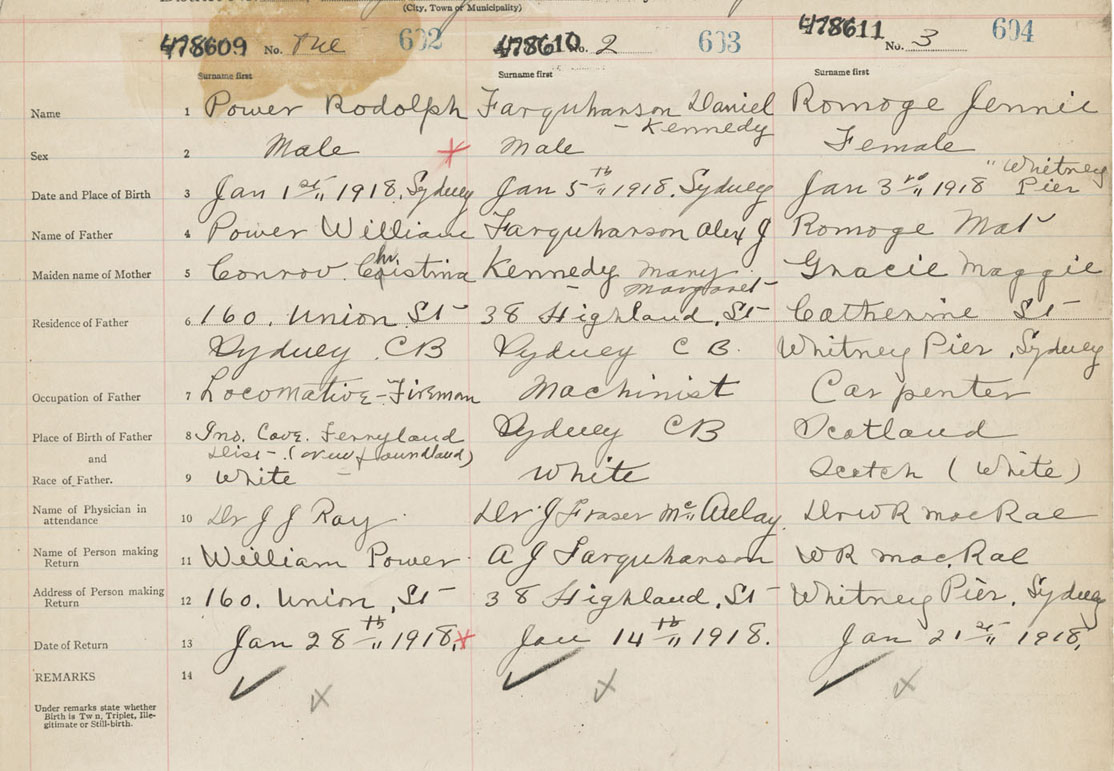 (City, Town or Municipality)
478609 No. One 602 478610 No. 2 603 478611 No. 3 604
Surname first Surname first Surname first
Name 1 Power Rodolph Farquharson Daniel Romoge Jennie
- Kennedy
Sex 2 Male Male Female
Date and Place of Birth 3 Jan 1st 1918. Sydney Jan 5th 1918. Sydney Jan 3rd 1918 " Whitney Pier
Name of Father 4 Power William Farquharson Alex J Romoge Mat
Maiden name of Mother 5 Conrov. Christina Kennedy Mary Margaret Gracie Maggie
Residence of Father 6 160. Union St 38 Highland. St Catherine St
Sydney C B Sydney C B. Whitney Pier, Sydney
Occupation of Father 7 Locomative-Fireman Machinist Carpenter
Place of Birth of Father 8 Cove. Ferryland Sydney CB Scotland
and Dist - (Newfoundland)
Race of Father. 9 White White Scotch (White)
Name of Physician in attendance 10 Dr J J Roy Dr. J Fraser Dr W R MacRae
Name of Person making Return 11 William Power A J Farquharson WR MacRae
Address of Person making Return 12 160. Union, St 38 Highland, St Whitney Pier, Sydney
Date of Return 13 Jan 28th 1918. Jan 14th 1918. Jan 21st 1918,
REMARKS 14
Under remarks state whether
Birth is Twn, Triplet, Ille-
gitimate or Still-birth.